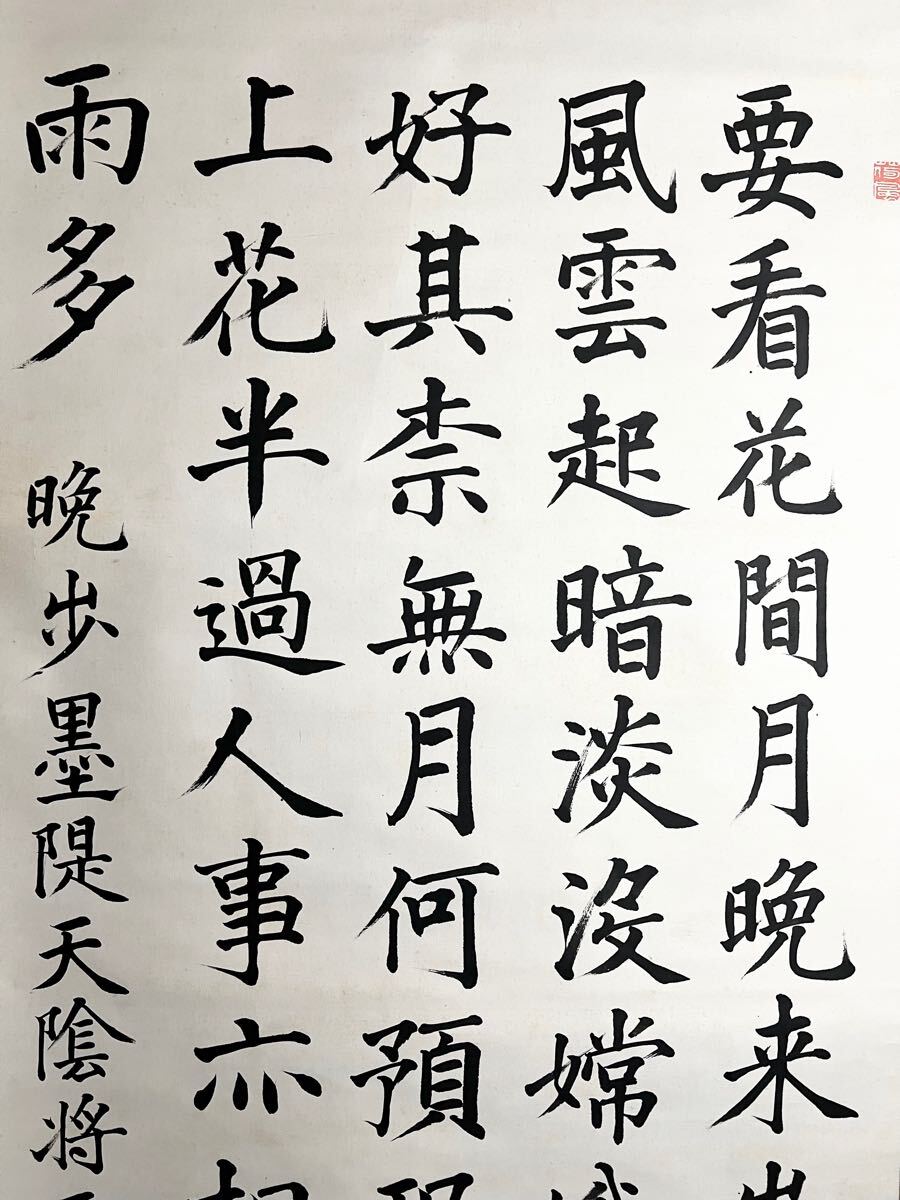 要看花間月晩来
風雲起暗淡没嫦
好其柰無月何預
上花半過人事亦
雨多 晩歩墨隄天陰将